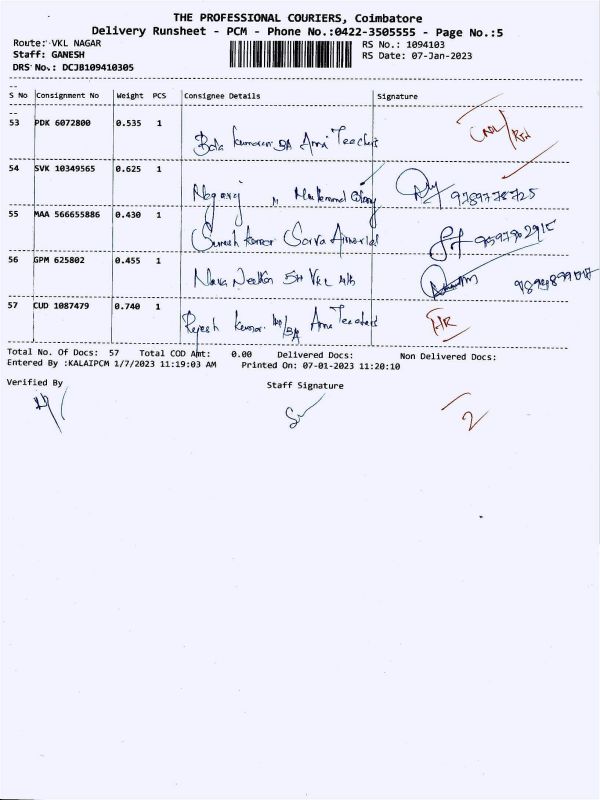 THE PROFESSIONAL COURIERS, Coimbatore
Delivery Runsheet - PCM - Phone No.:0422-3505555 - Page No.:5
Route: VKL NAGAR RS No.: 1094103
Staff: GANESH RS Date: 07-Jan-2023
DRS No.: DCJB109410305
S No Consignment No Weight PCS Consignee Details Signature
53 PDK 6072800 0.535 1
Bala kumaran Ama Teachers
54 SVK 10349565 0.625 1
Nagaraj
55 MAA 566655886 0.430 1
Suresh kumar Sarva
56 GPM 625802 0.455 1
57 CUD 1087479 0.740 1
Rajesh kumar Ama Teachers
Total No. Of Docs: 57 Total COD Amt: 0.00 Delivered Docs: Non Delivered Docs:
Entered By :KALAIPCM 1/7/2023 11:19:03 AM Printed On: 07-01-2023 11:20:10
Verified By Staff Signature
2